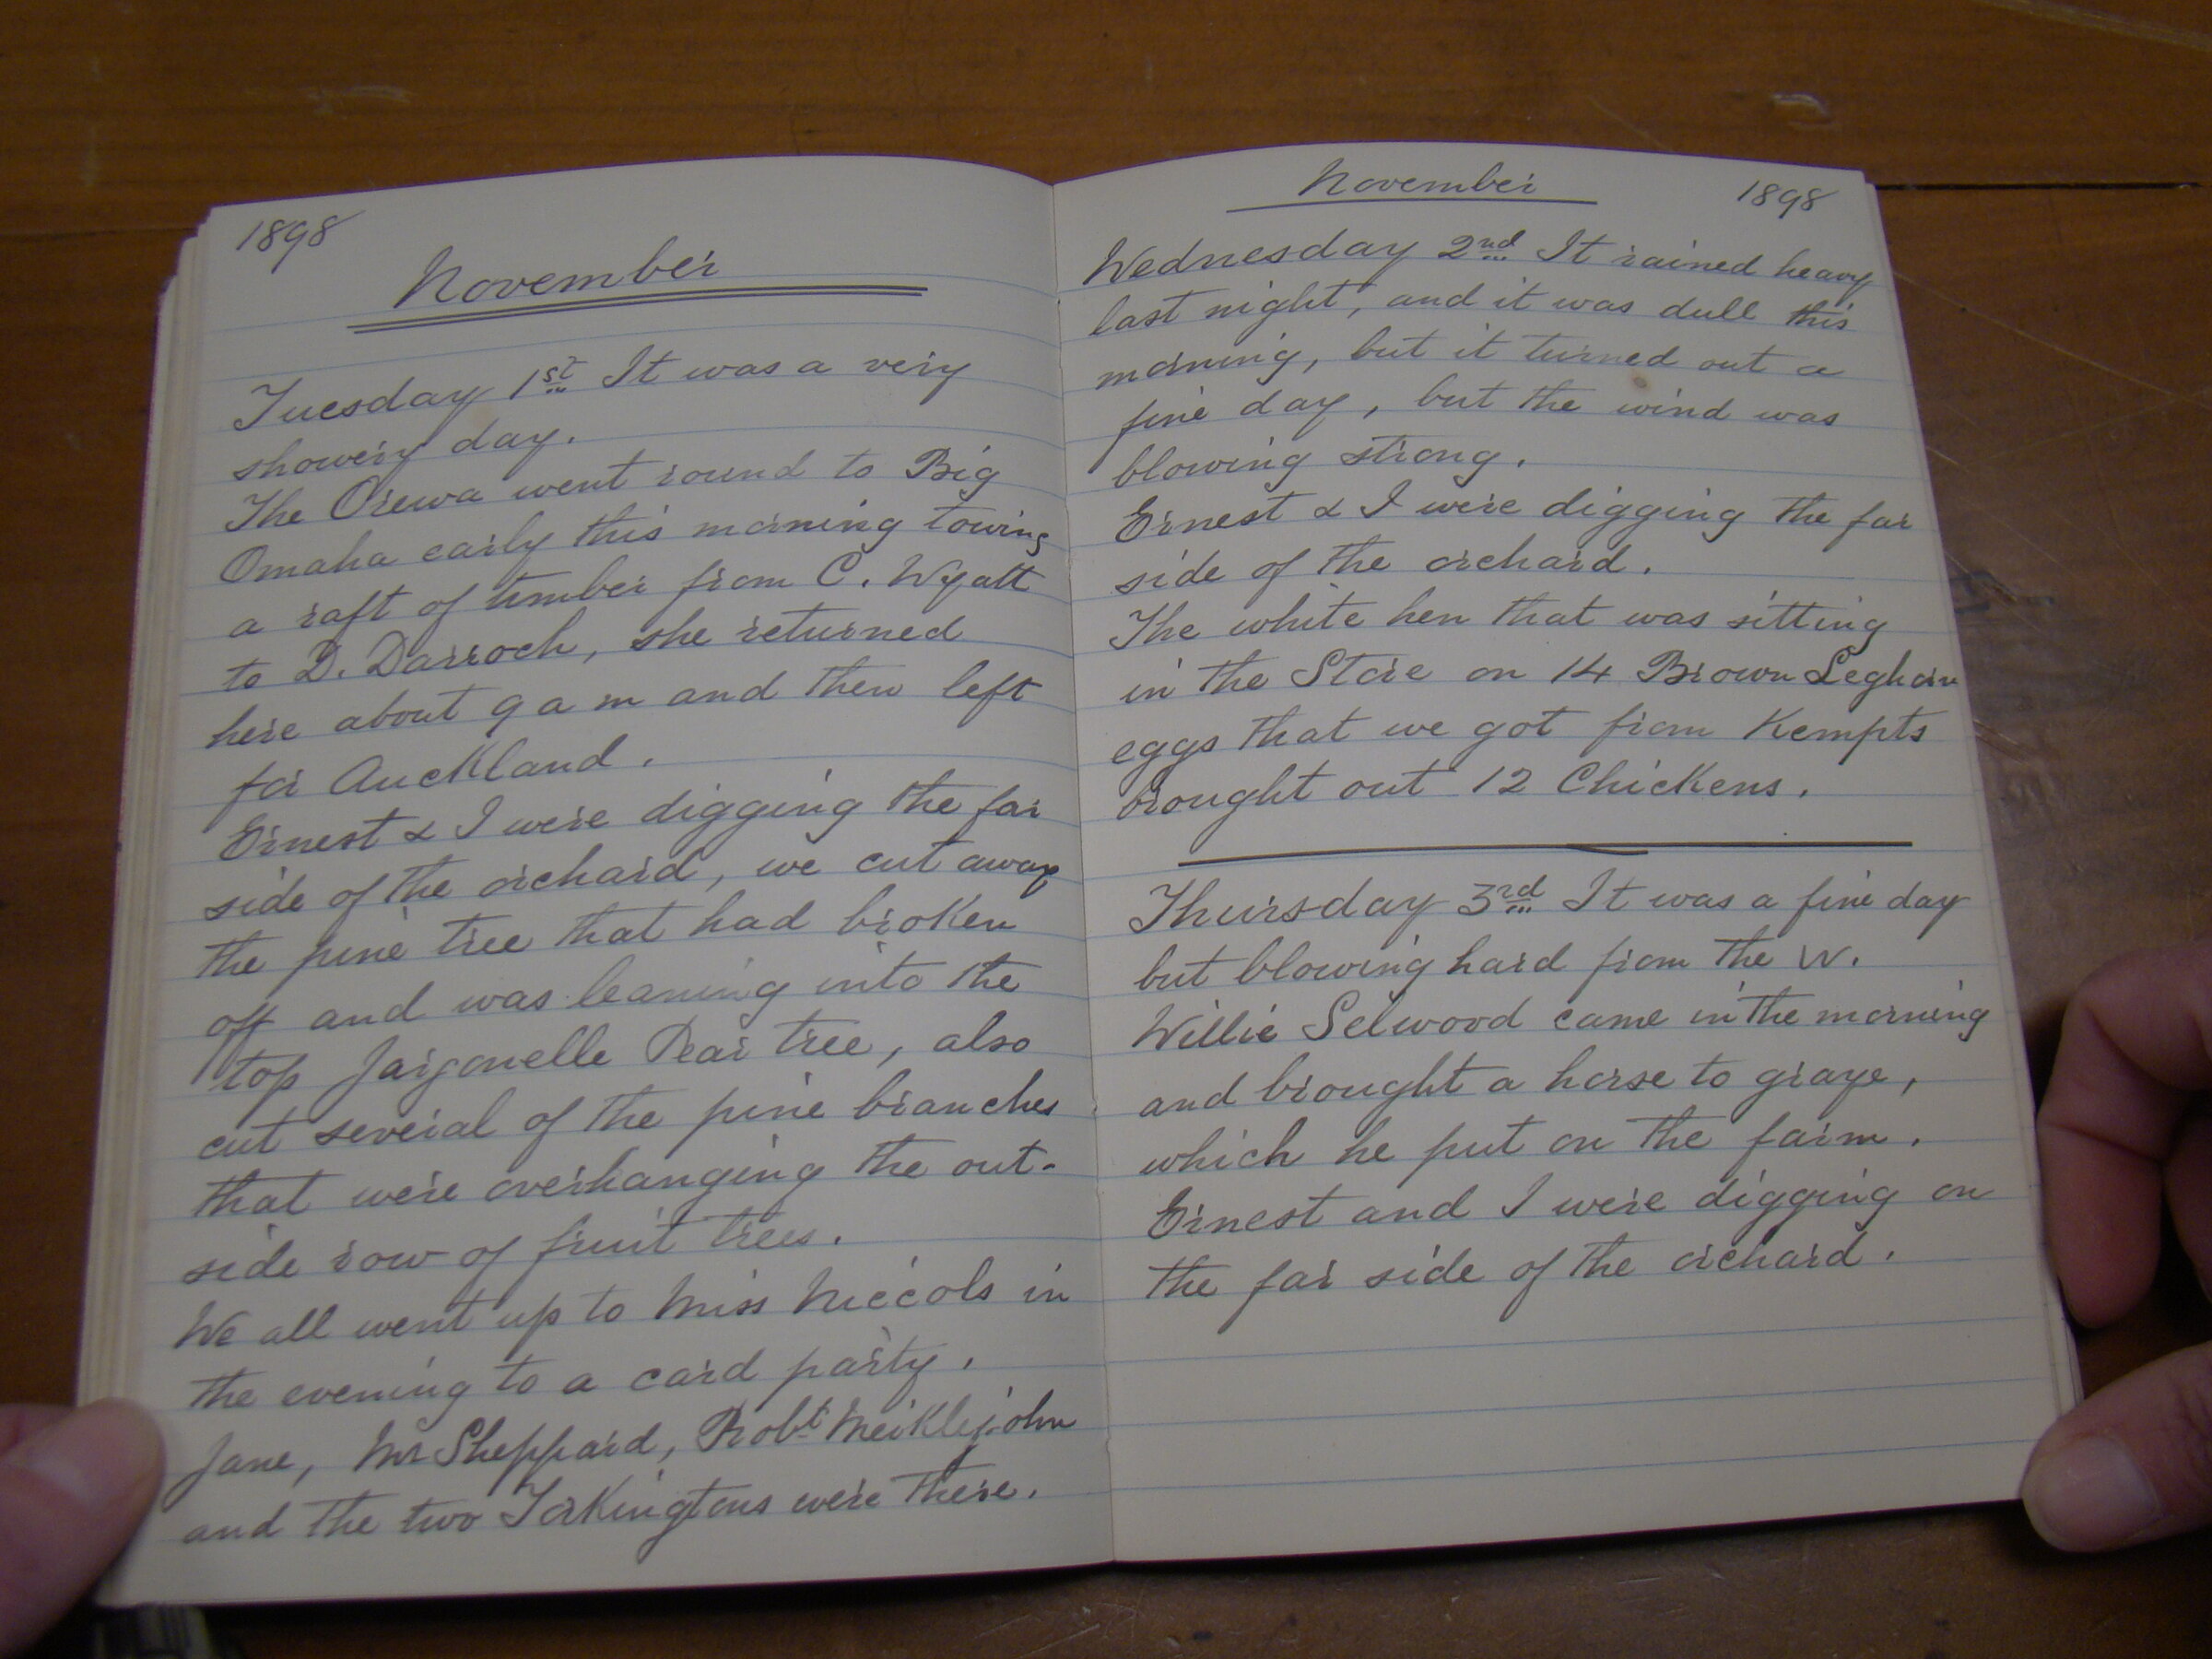 1898
November
Tuesday 1st It was a very
showery day.
The Orewa went round to Big
Omaha early this morning towing
a raft of timber from C. Wyatt
to D. Darroch, she returned
here about 9 a m and then left
for Auckland.
Ernest & I were digging the far
side of the orchard, we cut away
the pine tree that had broken
off and was leaning into the
top Jargonelle Pear tree, also
cut several of the pine branches
that were overhanging the out-
side row of fruit trees.
We all went up to Miss Niccols in
the evening to a card party.
Jane, Mr Sheppard, Robt Meiklejohn
and the two Torkingtons were there.
November 1898
Wednesday 2nd It rained heavy
last night, and it was dull this
morning, but it turned out a
fine day, but the wind was
blowing strong.
Ernest & I were digging the far
side of the orchard.
The white hen that was sitting
in the Store on 14 Brown Leghorn
eggs that we got from Kempts
brought out 12 Chickens.
Thursday 3rd It was a fine day
but blowing hard from the W.
Willie Selwood came in the morning
and brought a horse to graze,
which he put on the farm.
Ernest and I were digging on
the far side of the orchard.